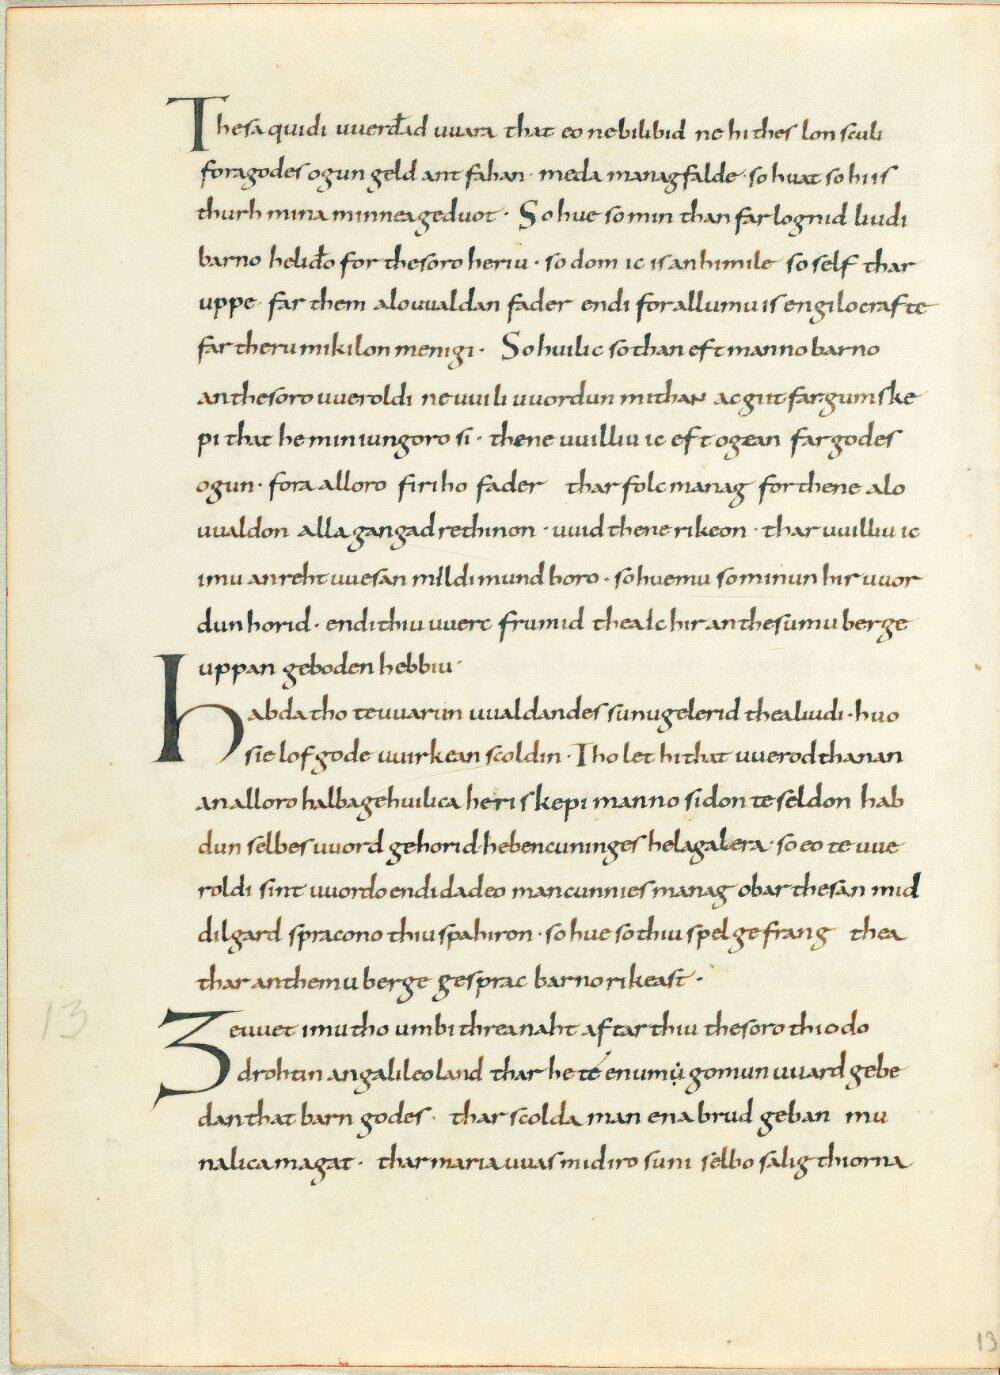 Thesa quidi uuerđad uuara that eo ne bilibid ne hi thes lon sculi
fora godes ogun geld antfahan · meda managfalde · so huat so hi is
thurh mina minnea geduot · So hue so min than farlognid liudi
barno heliđo for thesoro heriu · so dom ic is an himile so self thar
uppe far them alouualdan fader endi for allumu is engilo crafte
far theru mikilon menigi · So huilic so than eft manno barno
an thesoro uueroldi ne uuili uuordun mithan ac giit far gumske
pi that he min iungoro si · thene uuilliu ic eft ogean far godes
ogun · fora alloro firiho fader thar folc manag for thene alo
uualdon alla gangad rethinon · uuid thene rikeon · thar uuilliu ic
imu an reht uuesan mildi mundboro · so huemu so minun hir uuor
dun horid · endi thiu uuerc frumid thea ic hir an thesumu berge
uppan geboden hebbiu ·
habda tho te uuarun uualdandes sunu gelerid thea liudi · huo
sie lof gode uuirkean scoldin · Tho let hi that uuerod thanan
an alloro halba gehuilica heriskepi manno sidon te seldon hab
dun selbes uuord gehorid hebencuninges helaga lera · so eo te uue
roldi sint uuordo endi dadeo mancunnies manag obar thesan mid
dilgard spracono thiu spahiron · so hue so thiu spel gefrang thea
thar an themu berge gesprac barno rikeast ·
Geuuet imu tho umbi threa naht aftar thiu thesoro thiodo
drohtin an galileo land thar he te enumu gomun uuard gebe
dan that barn godes · thar scolda man ena brud geban mu
nalica magat · thar maria uuas mid iro suni selbo salig thiorna
13
13